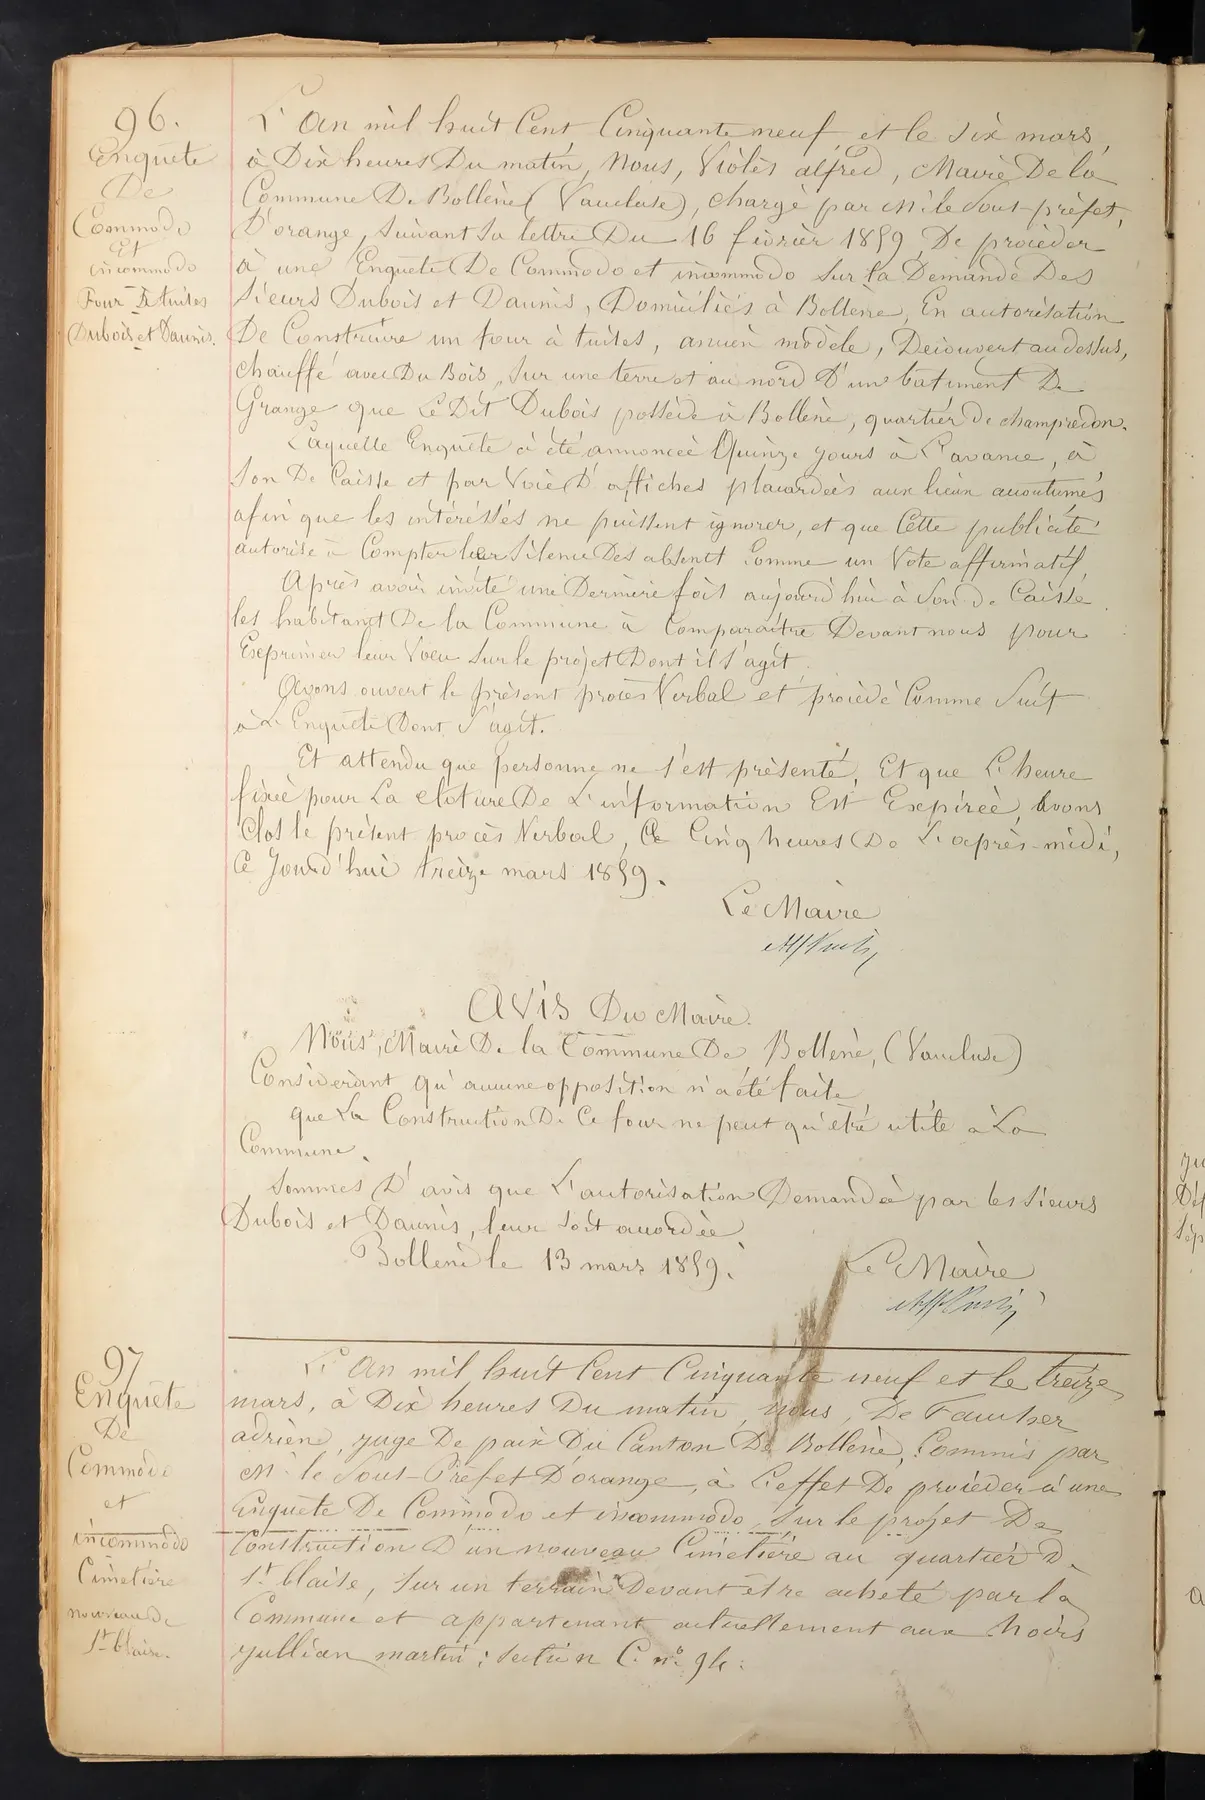 96.
Enquête
De
Commodo
Et
incommodo
Four à tuiles
Dubois et Daunis.
L'An mil huit Cent Cinquante neuf et le dix mars,
à Dix heures Du matin, Nous, Violès alfred, Maire De la
Commune De Bollène (Vaucluse), chargé par M. le Sous-préfet,
D'orange, Suivant sa lettre Du 16 février 1859, De procéder
à une Enquête De Commodo et incommodo sur la Demande Des
Sieurs Dubois et Daunis, Domiciliés à Bollène, En autorisation
De Construire un four à tuiles, ancien modèle, Découvert au dessus,
chauffé avec Du Bois, Sur une terre et au nord D'un batiment De
Grange que Le Dit Dubois possède à Bollène, quartier de champredon.
Laquelle Enquête à été annoncée Quinze jours à L'avance, à
son De Caisse et par Voie D'affiches placardées aux lieux accoutumés
afin que les intéréssés ne puissent ignorer, et que Cette publicité
autorise à Compter leur silence Des absents Comme un Vote affirmatif
Après avoir invité une Dernière fois aujourd'hui à Son de Caisse
les habitants De la Commune à Comparaître Devant nous pour
Exprimer leur Voeu Sur le projet Dont il s'agit
Avons ouvert le présent procès Verbal et procédé Comme Suit
à L'Enquête Dont S'agit.
Et attendu que personne ne s'est présenté, Et que L'heure
fixée pour La cloture De L'information Est Expirée, Avons
Clos le présent procès Verbal, Ce Cinq heures De L'après-midi,
Ce Jourd'hui treize mars 1859.
Le Maire
AVIS Du Maire.
Nous, Maire De la Commune De Bollène, (Vaucluse)
Considérant qu'aucune opposition n'a été faite
que La Construction De Ce four ne peut qu'être utile à La
Commune.
Sommes D'avis que L'autorisation Demandée par les Sieurs
Dubois et Daunis, leur soit accordée
Bollène le 13 mars 1859.
Le Maire
97
Enquête
De
Commodo
et
incommodo
Cimetière
nouveau de
St blaise.
L'An mil huit Cent Cinquante neuf et le treize
mars, à Dix heures Du matin, nous, De Faucher
adrien, juge De paix Du Canton De Bollène, Commis par
M. le Sous-Préfet D'orange, à L'effet De procéder à une
Enquête De Commodo et incommodo, sur le projet De
Construction D'un nouveau Cimetière au quartier D.
St blaise, sur un terrain Devant être acheté par la
Commune et appartenant actuellement aux hoirs
jullian martin; section C. no 94.